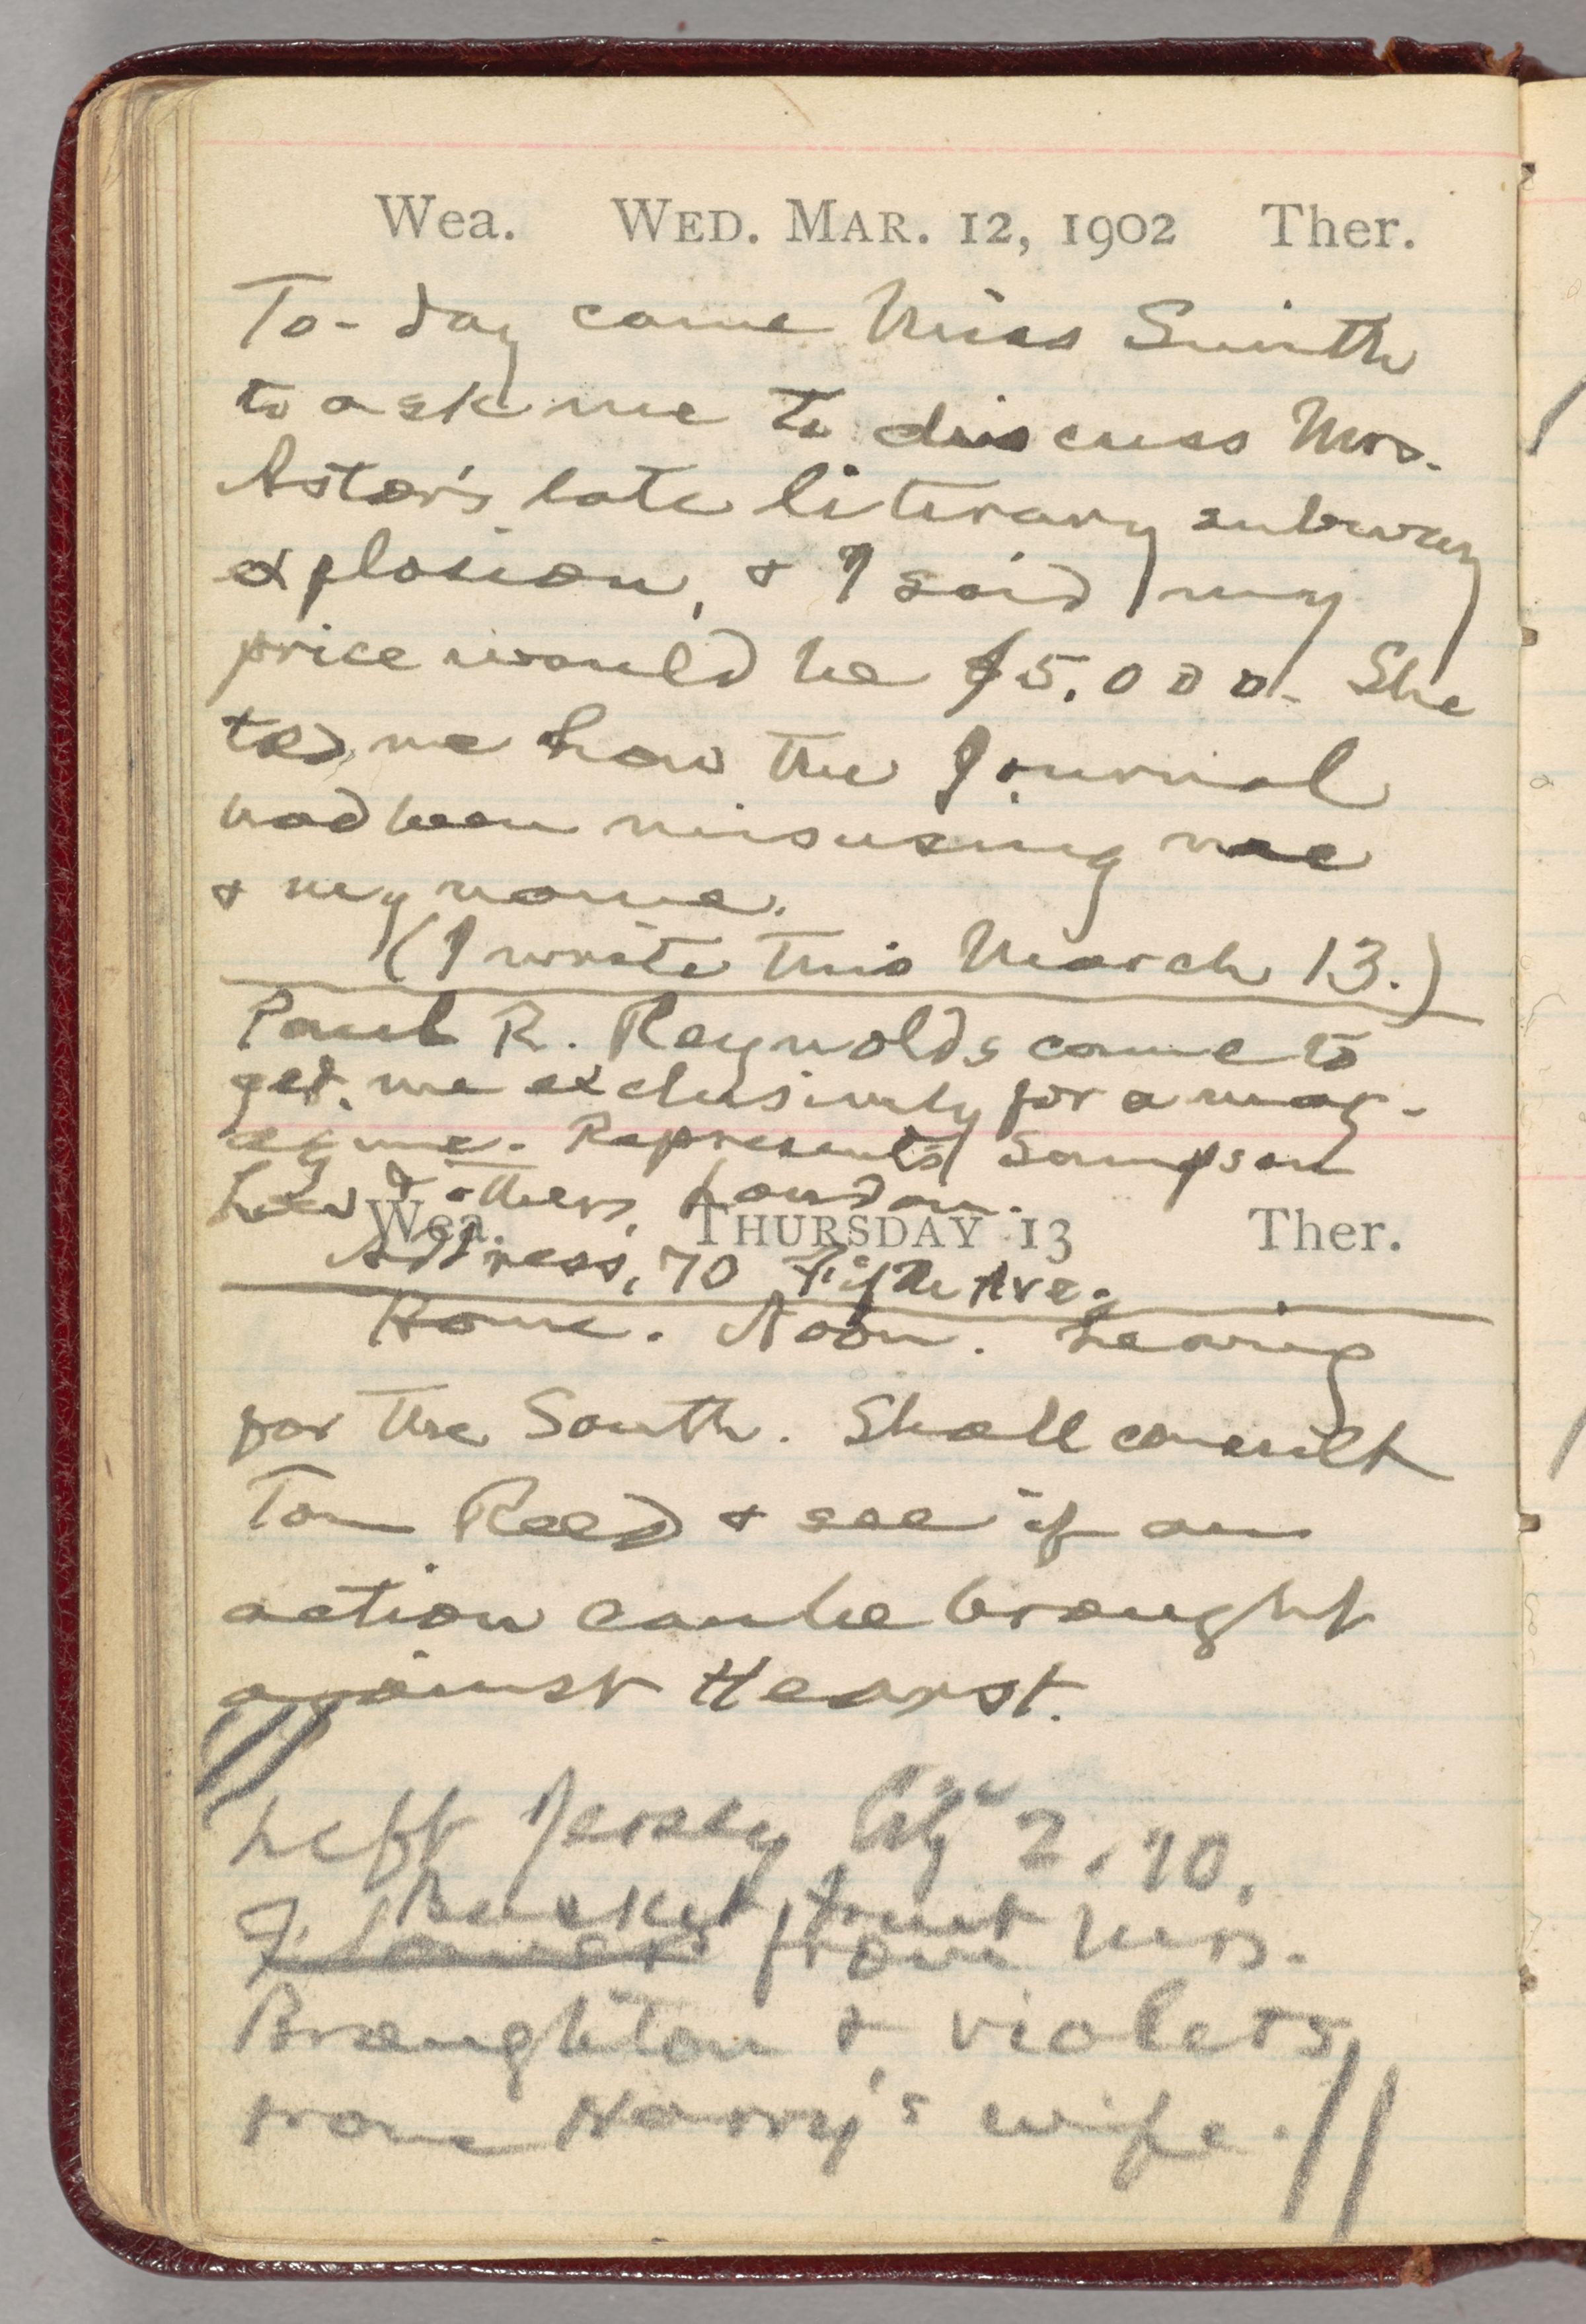 Wea. WED. MAR. 12, 1902 Ther.
To-day came Miss Smith
to ask me to discuss Mrs.
Astor's late literary subway
explosion, & I said my
price would be $5,000. She
told me how the Journal
had been misusing me
& my name.
(I wrote this March 13.)
Paul R. Reynolds came to
get me exclusively for a mag-
azine. Represents Sampson
Low & others, London.
Wea. THURSDAY 13 Ther.
Address, 70 Fifth Ave.
Home. Noon. Leaving
for the South. Shall consult
Tom Reed & see if an
action can be brought
against Hearst.
Left Jersey City 2.10.
Basket fruit
Flowers from Mrs.
Broughton & violets
from Harry's wife.